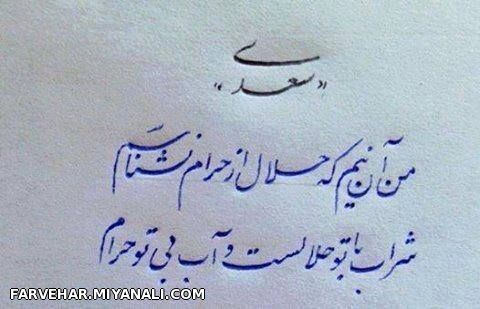 «سعدی»
من آن نیم که حلال از حرام نشناسم
شراب با تو حلالست و آب بی تو حرام
FARVEHAR.MIYANALI.COM